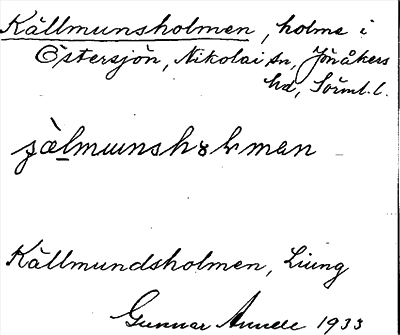 Källmunsholmen, holme i
Östersjön, Nikolai sn, Jönåkers
hd, Sörml. l.
Källmundsholmen, Liung
Gunnar 1933